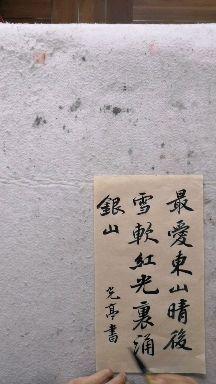 最愛東山晴後
雪軟紅光裏涌
銀山
光亭書